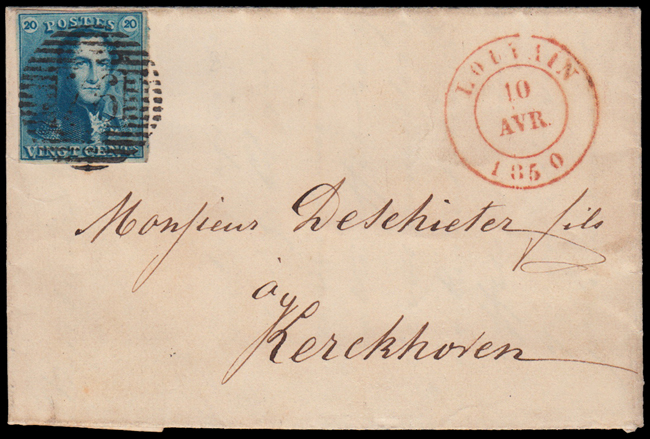 20 POSTES 20
VINGT CENTS
LOUVAIN
10
AVR.
1850
Monsieur DeSchieter fils
à
Kerckhoven